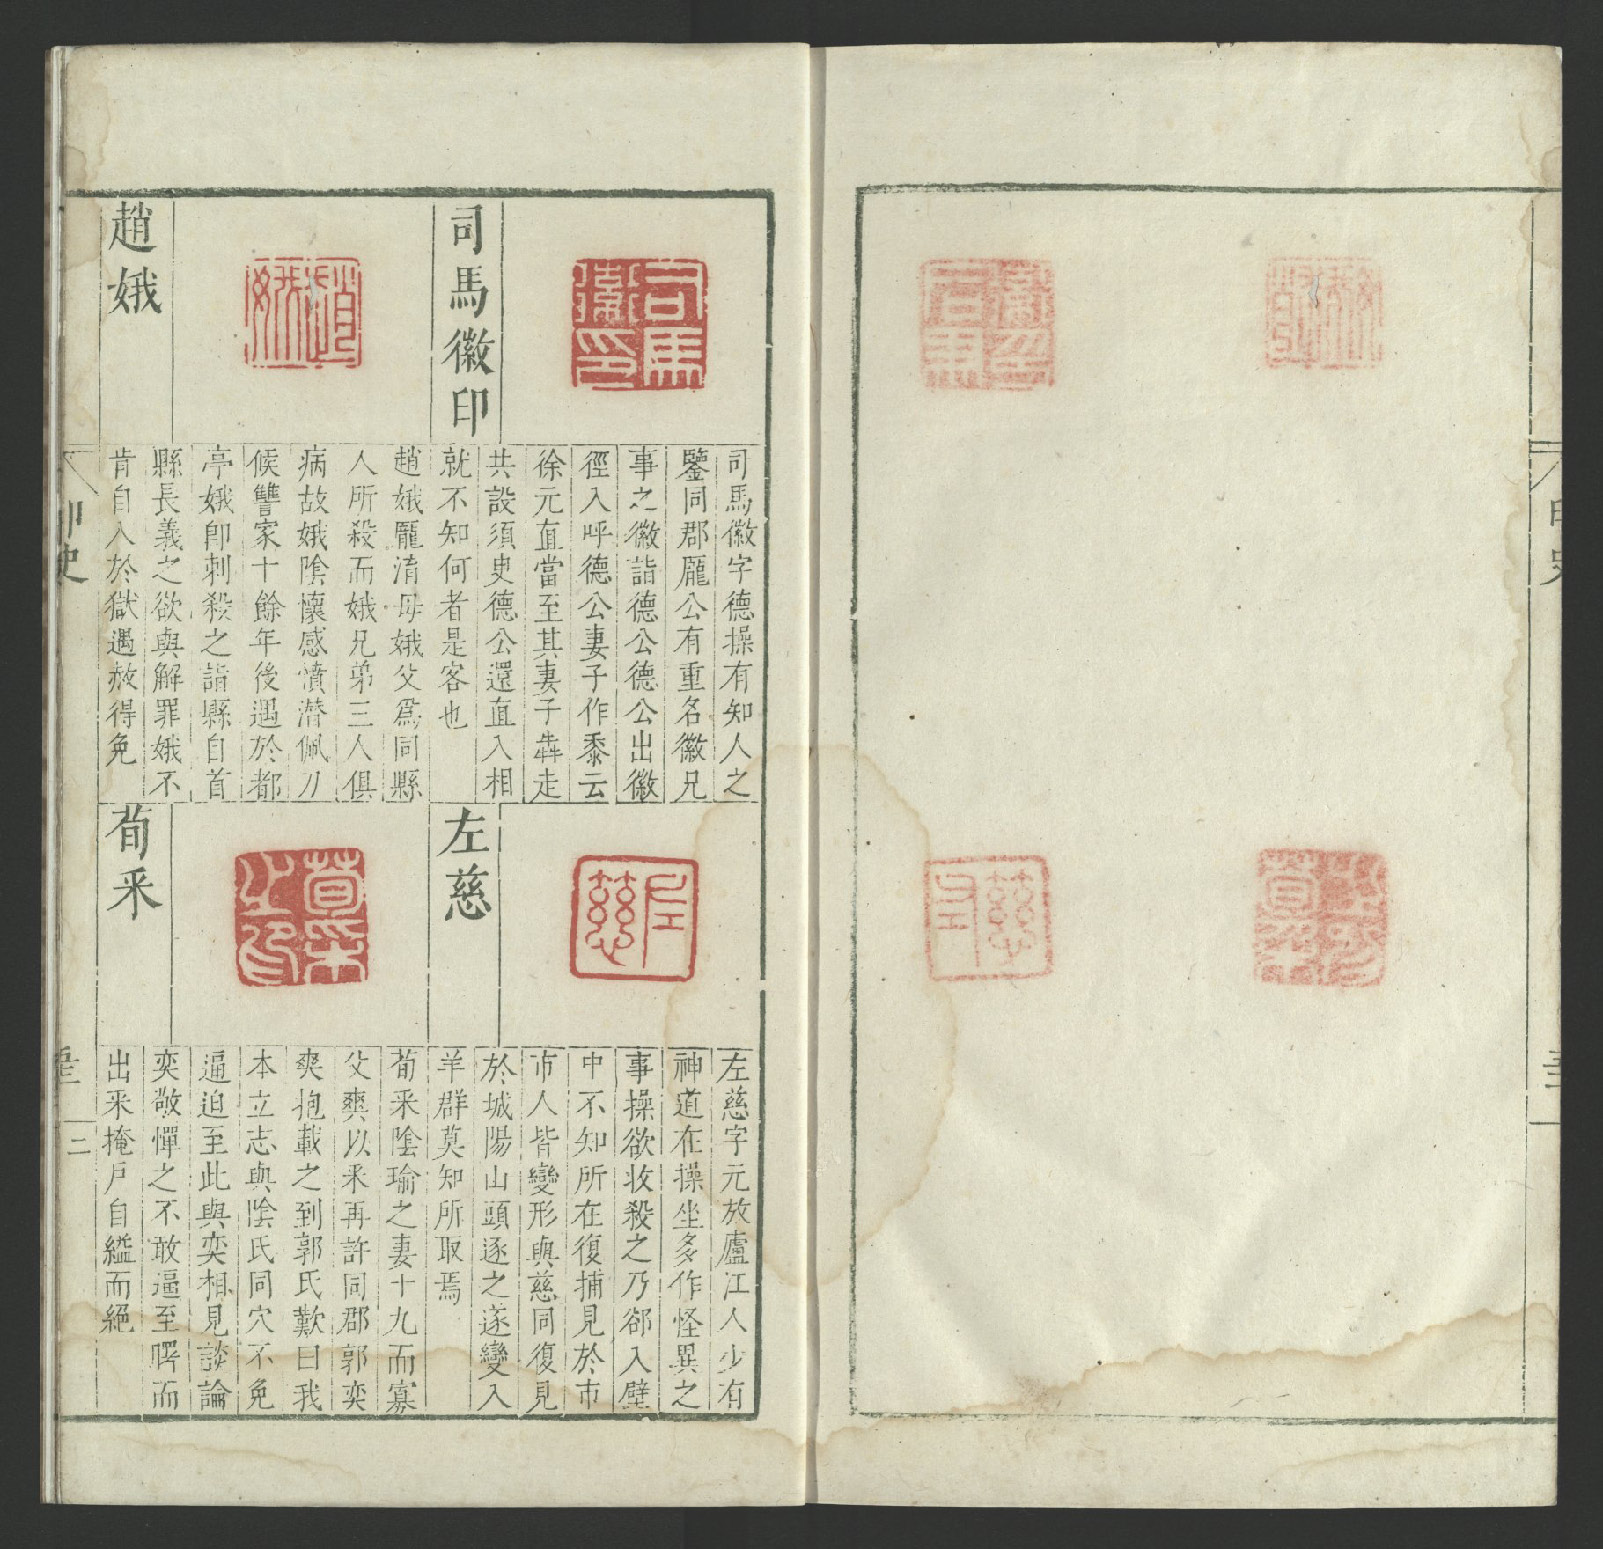 司馬徽印
司馬徽字德操有知人之
鑒同郡龎公有重名徽兄
事之徽詣德公德公出徽
徑入呼德公妻子作黍云
徐元直當至其妻子犇走
共設須臾德公還直入相
就不知何者是客也
趙娥
趙娥龎淯母娥父爲同縣
人所殺而娥兄弟三人俱
病故娥陰懷感憤潜佩刀
候讐家十餘年後遇於都
亭娥卽刺殺之詣縣自首
縣長義之欲與解罪娥不
肯自入於獄遇赦得免
左慈
左慈字元放廬江人少有
神道在操坐多作怪異之
事操欲收殺之乃郤入壁
中不知所在復捕見於市
市人皆變形與慈同復見
於城陽山頭逐之遂變入
羊群莫知所取焉
荀采
荀采陰瑜之妻十九而寡
父爽以采再許同郡郭奕
爽抱載之到郭氏歎曰我
本立志與陰氏同穴不免
逼迫至此與奕相見談論
奕敬憚之不敢逼至曙而
出采掩戶自縊而絕
印史
三
司馬徽印
趙娥
左慈
荀采之印